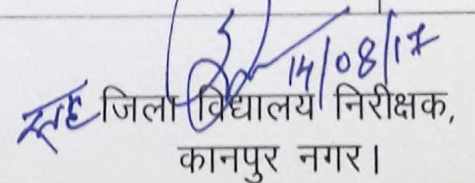 14/08/17
सह जिला विद्यालय निरीक्षक,
कानपुर नगर।